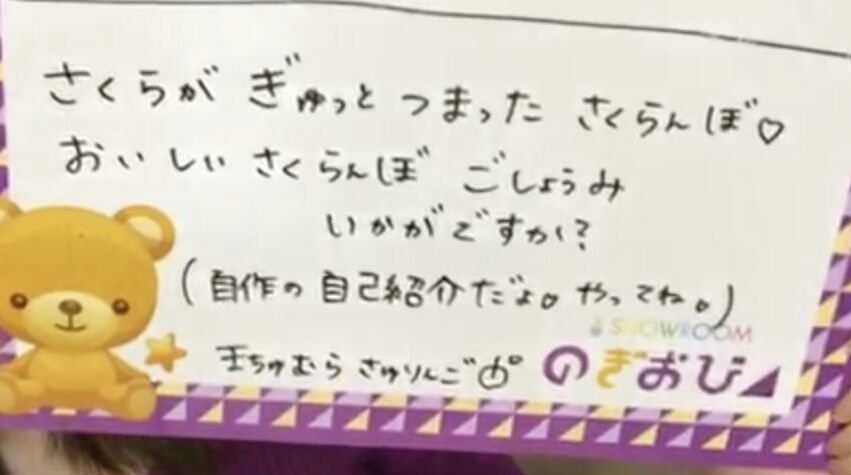 さくらが ぎゅっと つまった さくらんぼ♡
おいしい さくらんぼ ごしょうみ
いかがですか?
(自作の自己紹介だよ。やってね。)
SHOWROOM
王ちゅむら さゆりんご
のぎおび